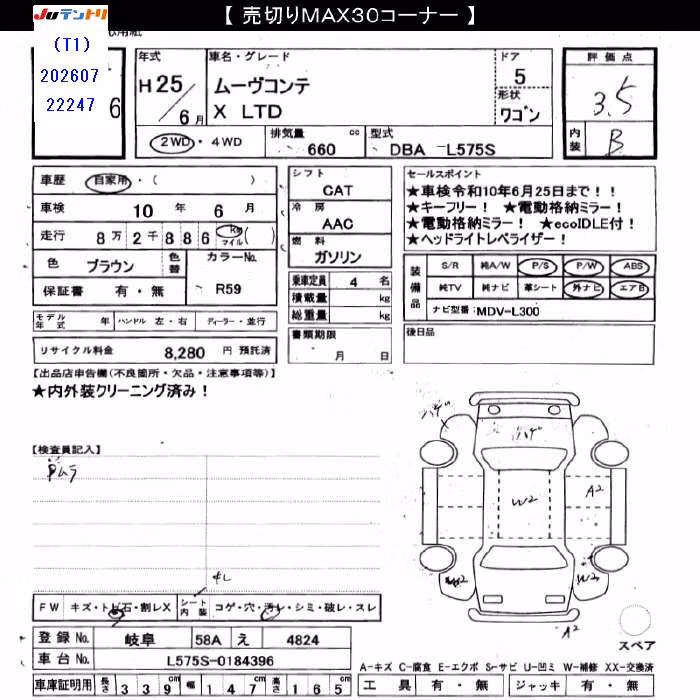 JUテントリ
【 売切りMAX30コーナー 】
(T1)
202607
22247
6
年式 H25/6月
車名・グレード ムーヴコンテ
X LTD
ドア 5
形状 ワゴン
評価点 3.5
内装 B
2WD・4WD
排気量 660 cc
型式 DBA L575S
車歴 自家用・( )
車検 10年 6月
走行 8万2千886 km マイル ( )
色 ブラウン 色替
カラーNo. R59
保証書 有・無
シフト CAT
冷房 AAC
燃料 ガソリン
乗車定員 4 名
積載量 kg
総重量 kg
セールスポイント
★車検令和10年6月25日まで!!
★キーフリー! ★電動格納ミラー!
★電動格納ミラー! ★ecoIDLE付!
★ヘッドライトレベライザー!
装備品
S/R 純A/W P/S P/W ABS
純TV 純ナビ 革シート 外ナビ エアB
ナビ型番:MDV-L300
モデル年式 年 ハンドル 左・右 ディーラー・並行
書類期限 月 日
後日品
リサイクル料金 8,280 円 預託済
【出品店申告欄(不良箇所・欠品・注意事項等)】
★内外装クリーニング済み!
【検査員記入】
ハゲ
ハゲ
W2
A2
W2
A2
FW キズ・トビ石・割レX
シート内装 コゲ・穴・汚レ・シミ・破レ・スレ
スペア
登録No. 岐阜 58A え 4824
車台No. L575S-0184396
A-キズ C-腐食 E-エクボ S-サビ U-凹ミ W-補修 XX-交換済
車庫証明用 長さ 339cm 幅 147cm 高さ 165cm
工具 有・無 ジャッキ 有・無